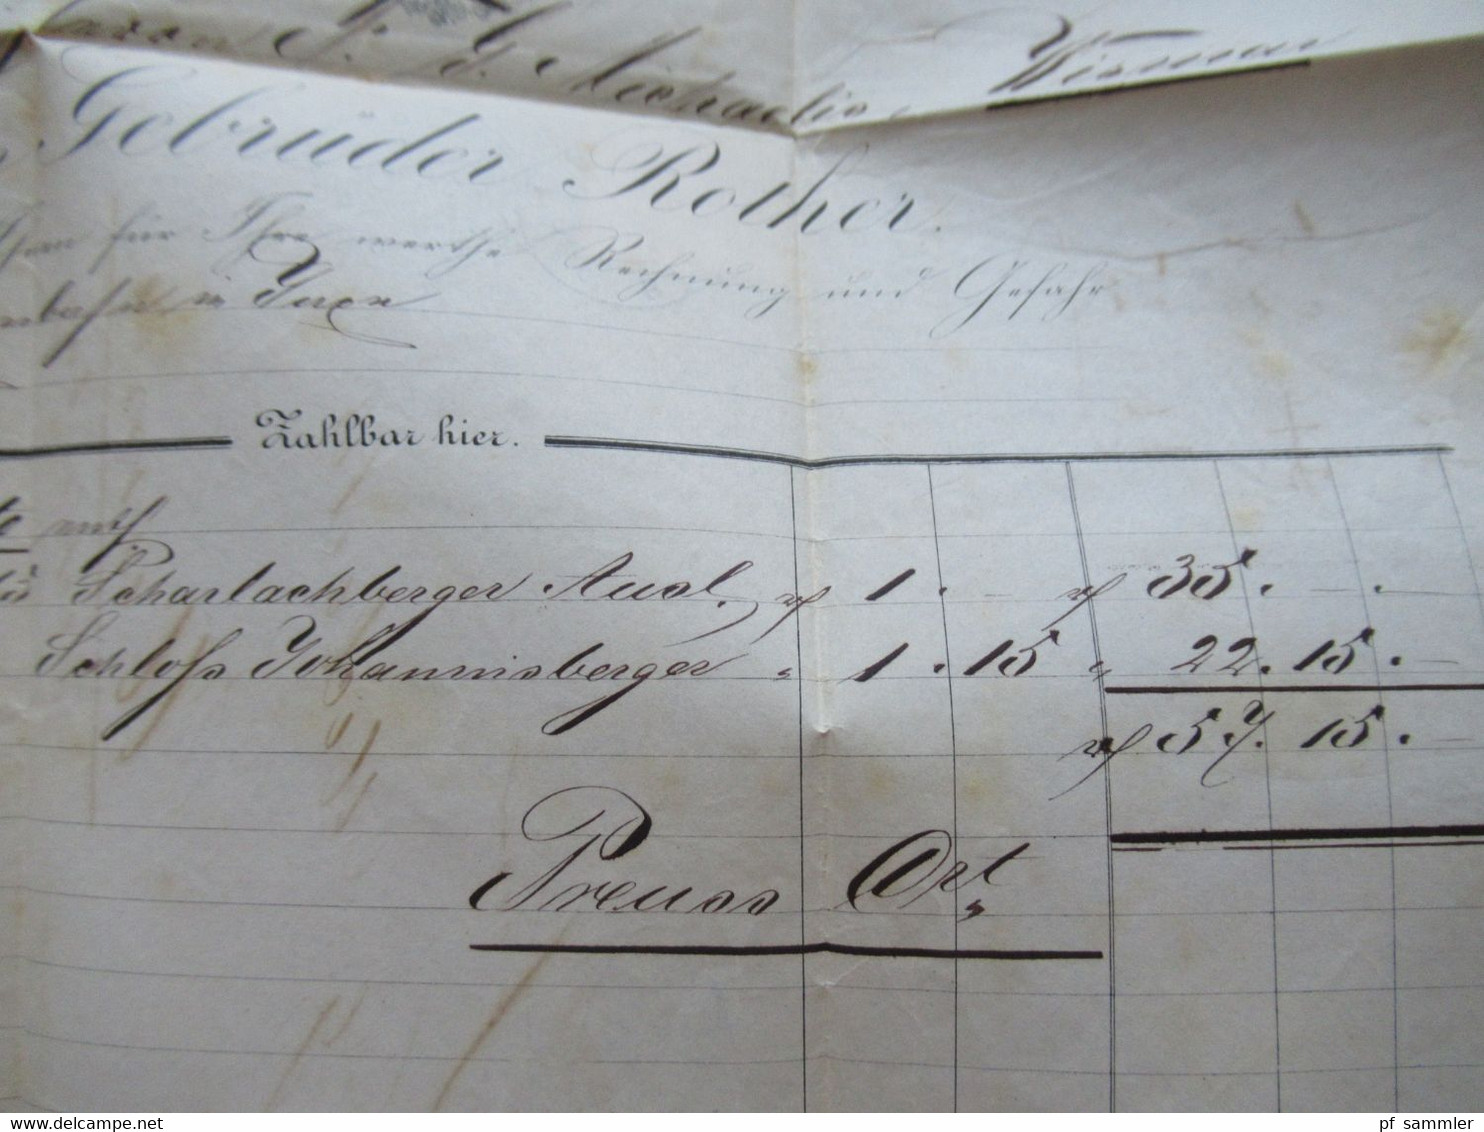 J. G. Michaelis, Wismar
Gebrüder Rother.
für Ihre werthe Rechnung und Gefahr
Zahlbar hier.
Scharlachberger Ausl. 1. – 35. – .
Schloss Johannisberger " 1.15 " 22.15. –
57.15. –
Preuss Crt
www.delcampe.net
pf_sammler